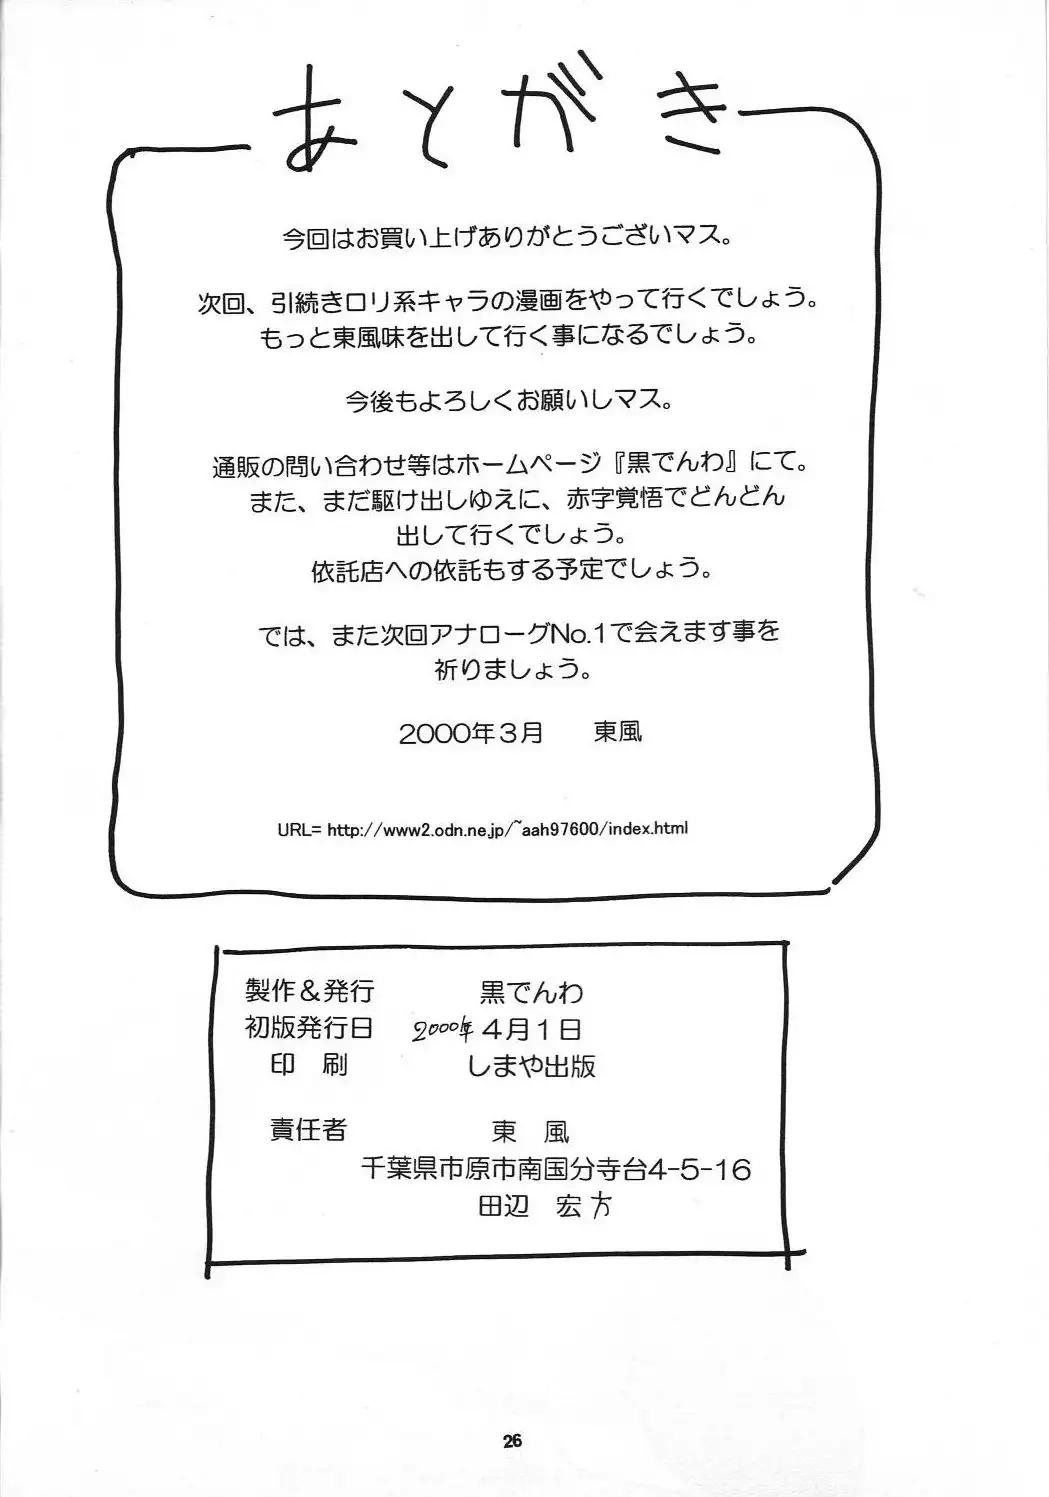 あとがき
今回はお買い上げありがとうございマス。
次回、引続きロリ系キャラの漫画をやって行くでしょう。
もっと東風味を出して行く事になるでしょう。
今後もよろしくお願いしマス。
通販の問い合わせ等はホームページ『黒でんわ』にて。
また、まだ駆け出しゆえに、赤字覚悟でどんどん
出して行くでしょう。
依託店への依託もする予定でしょう。
では、また次回アナローグNo.1で会えます事を
祈りましょう。
2000年3月　東風
URL= http://www2.odn.ne.jp/~aah97600/index.html
製作＆発行　黒でんわ
初版発行日　2000年4月1日
印　刷　しまや出版
責任者　東　風
千葉県市原市南国分寺台4-5-16
田辺　宏方
26